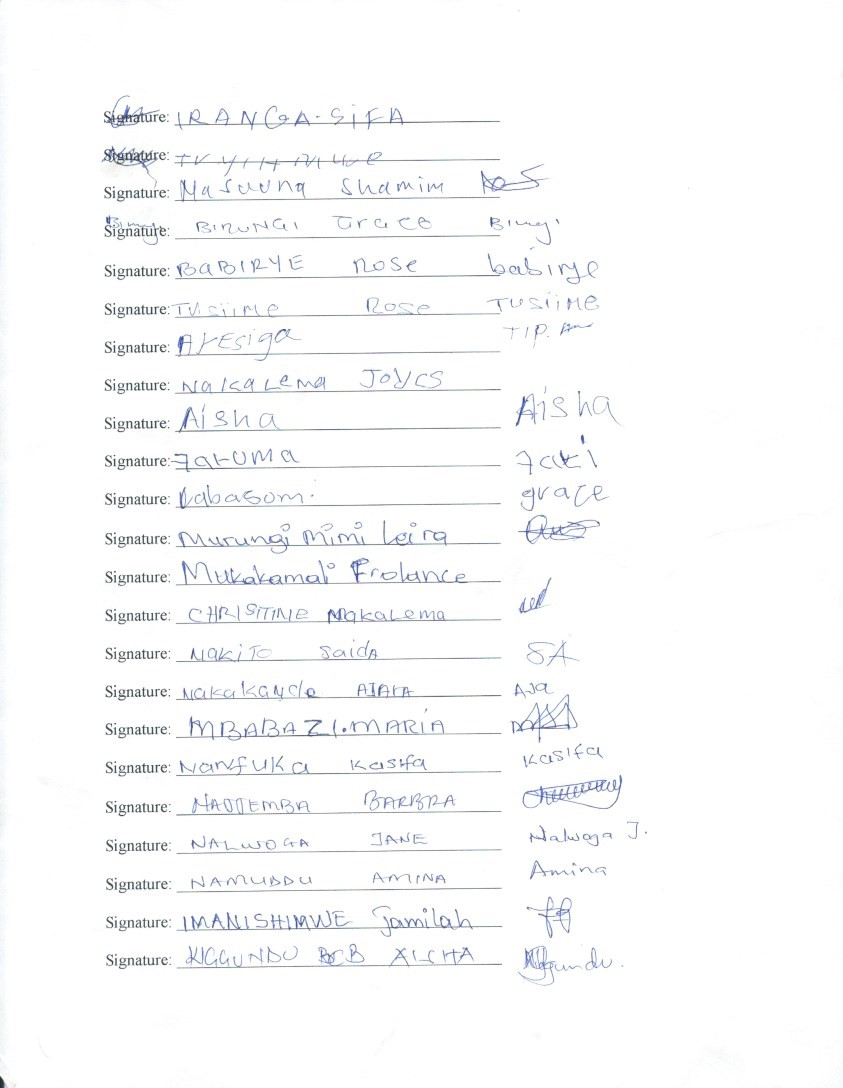 Signature: IRANGA-SiFA
Signature:
Signature: Masuuna Shamim
Signature: BIRUNGI Grace Birungi
Signature: BABIRYE Rose babirye
Signature: Tusiime Rose TUSiiME
Signature: AYESiga TIP.
Signature: Nakalema JOYCS
Signature: Aisha Aisha
Signature: Fatuma Fati
Signature: Kabasom. grace
Signature: Murungi mimi Leira
Signature: Mukakamali Frolance
Signature: CHRISITINE Nakalema
Signature: Nakito Saida SA
Signature: Nakakande AJARA AJa
Signature: MBABAZI.MARIA
Signature: Nanfuka Kasifa Kasifa
Signature: NAJJEMBA BARBRA
Signature: NALWOGA JANE Nalwoga J.
Signature: NAMUDDU AMINA Amina
Signature: IMANISHIMWE Jamilah
Signature: KIGGUNDU BCB Kiggundu.